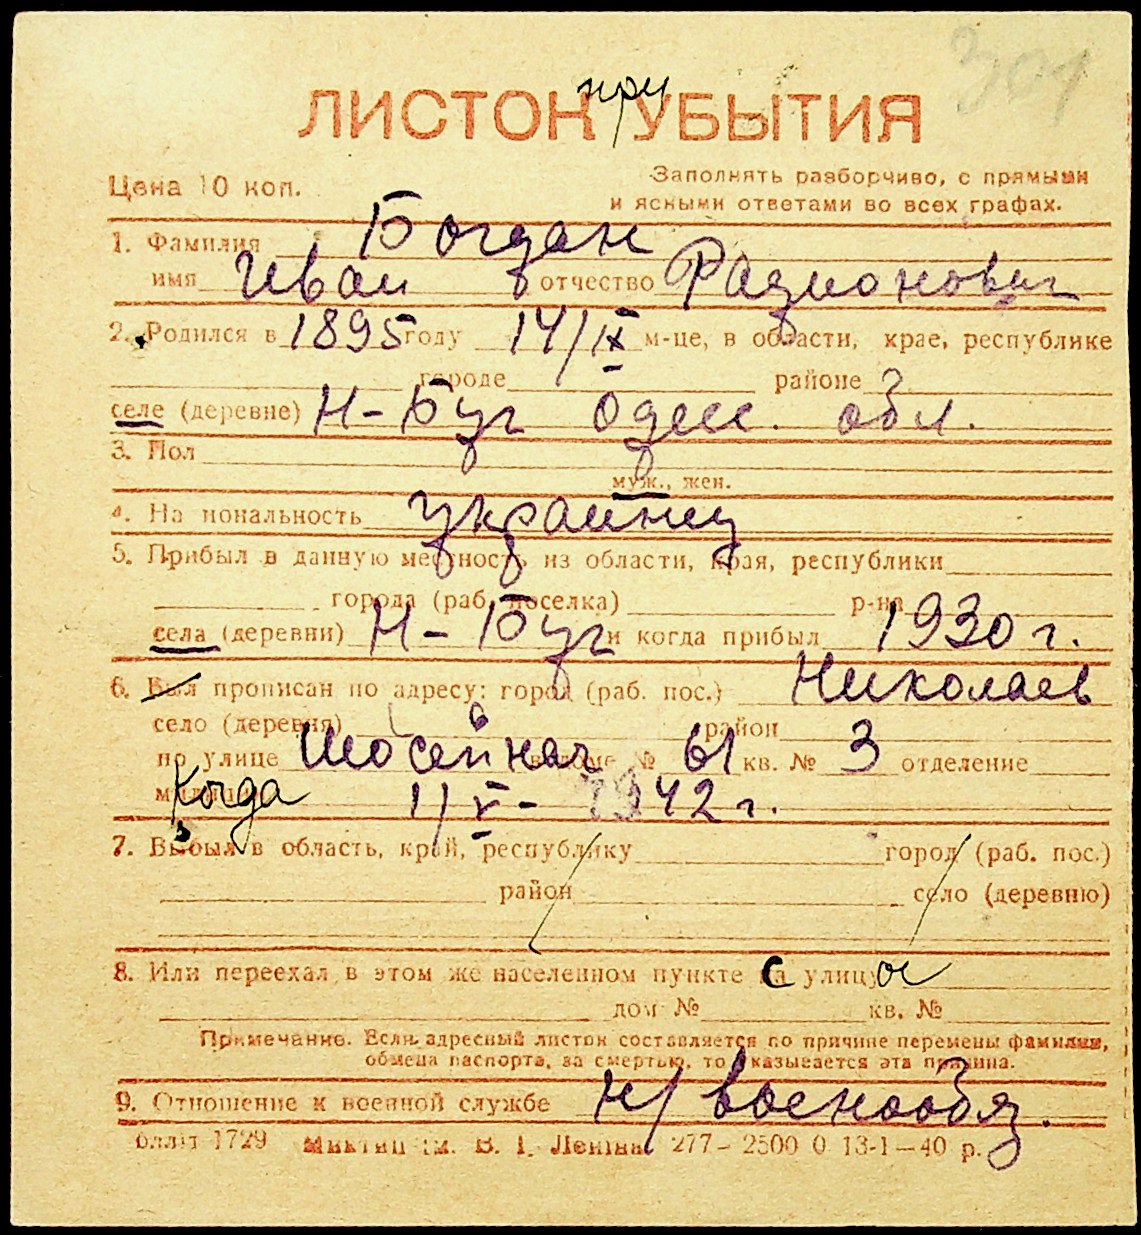 301
при
ЛИСТОК УБЫТИЯ
Цена 10 коп.
Заполнять разборчиво, с прямыми
и ясными ответами во всех графах.
1. Фамилия Богдан
имя Иван отчество Радионович
2. Родился в 1895 году 14/IX м-це, в области, крае, республике
городе районе
селе (деревне) Н-Буг Одесс. обл.
3. Пол
муж., жен.
4. Национальность украинец
5. Прибыл в данную местность из области, края, республики
города (раб. поселка) р-на
села (деревни) Н-Буг и когда прибыл 1930 г.
6. Был прописан по адресу: город (раб. пос.) Николаев
село (деревня) район
по улице Шосейная в доме № 61 кв. № 3 отделение
Когда 1/V - 1942 г.
7. Выбыл в область, край, республику город (раб. пос.)
район село (деревню)
8. Или переехал в этом же населенном пункте с улицы
дом № кв. №
Примечание. Если адресный листок составляется по причине перемены фамилии,
обмена паспорта, за смертью, то указывается эта причина.
9. Отношение к военной службе н/военнообяз.
1729 В. І. Леніна 277–2500 0 13-1—40 р.